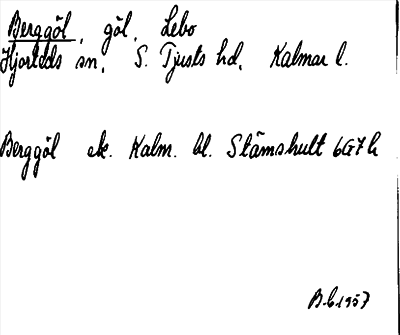 Berggöl, göl, Lebo
Hjorteds sn, S. Tjusts hd, Kalmar l.
Berggöl ek. Kalm. bl. Stämshult 6G7h
1957